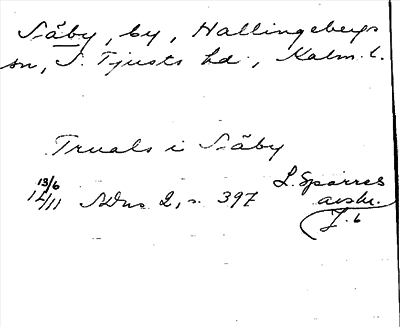 Näby, by, Hallingebergs
sn, S. Tjusts hd., Kalm. l.
Truals i Näby
13/6
1411 SDns 2, s. 397
L. Sparres
avskr.
J. b